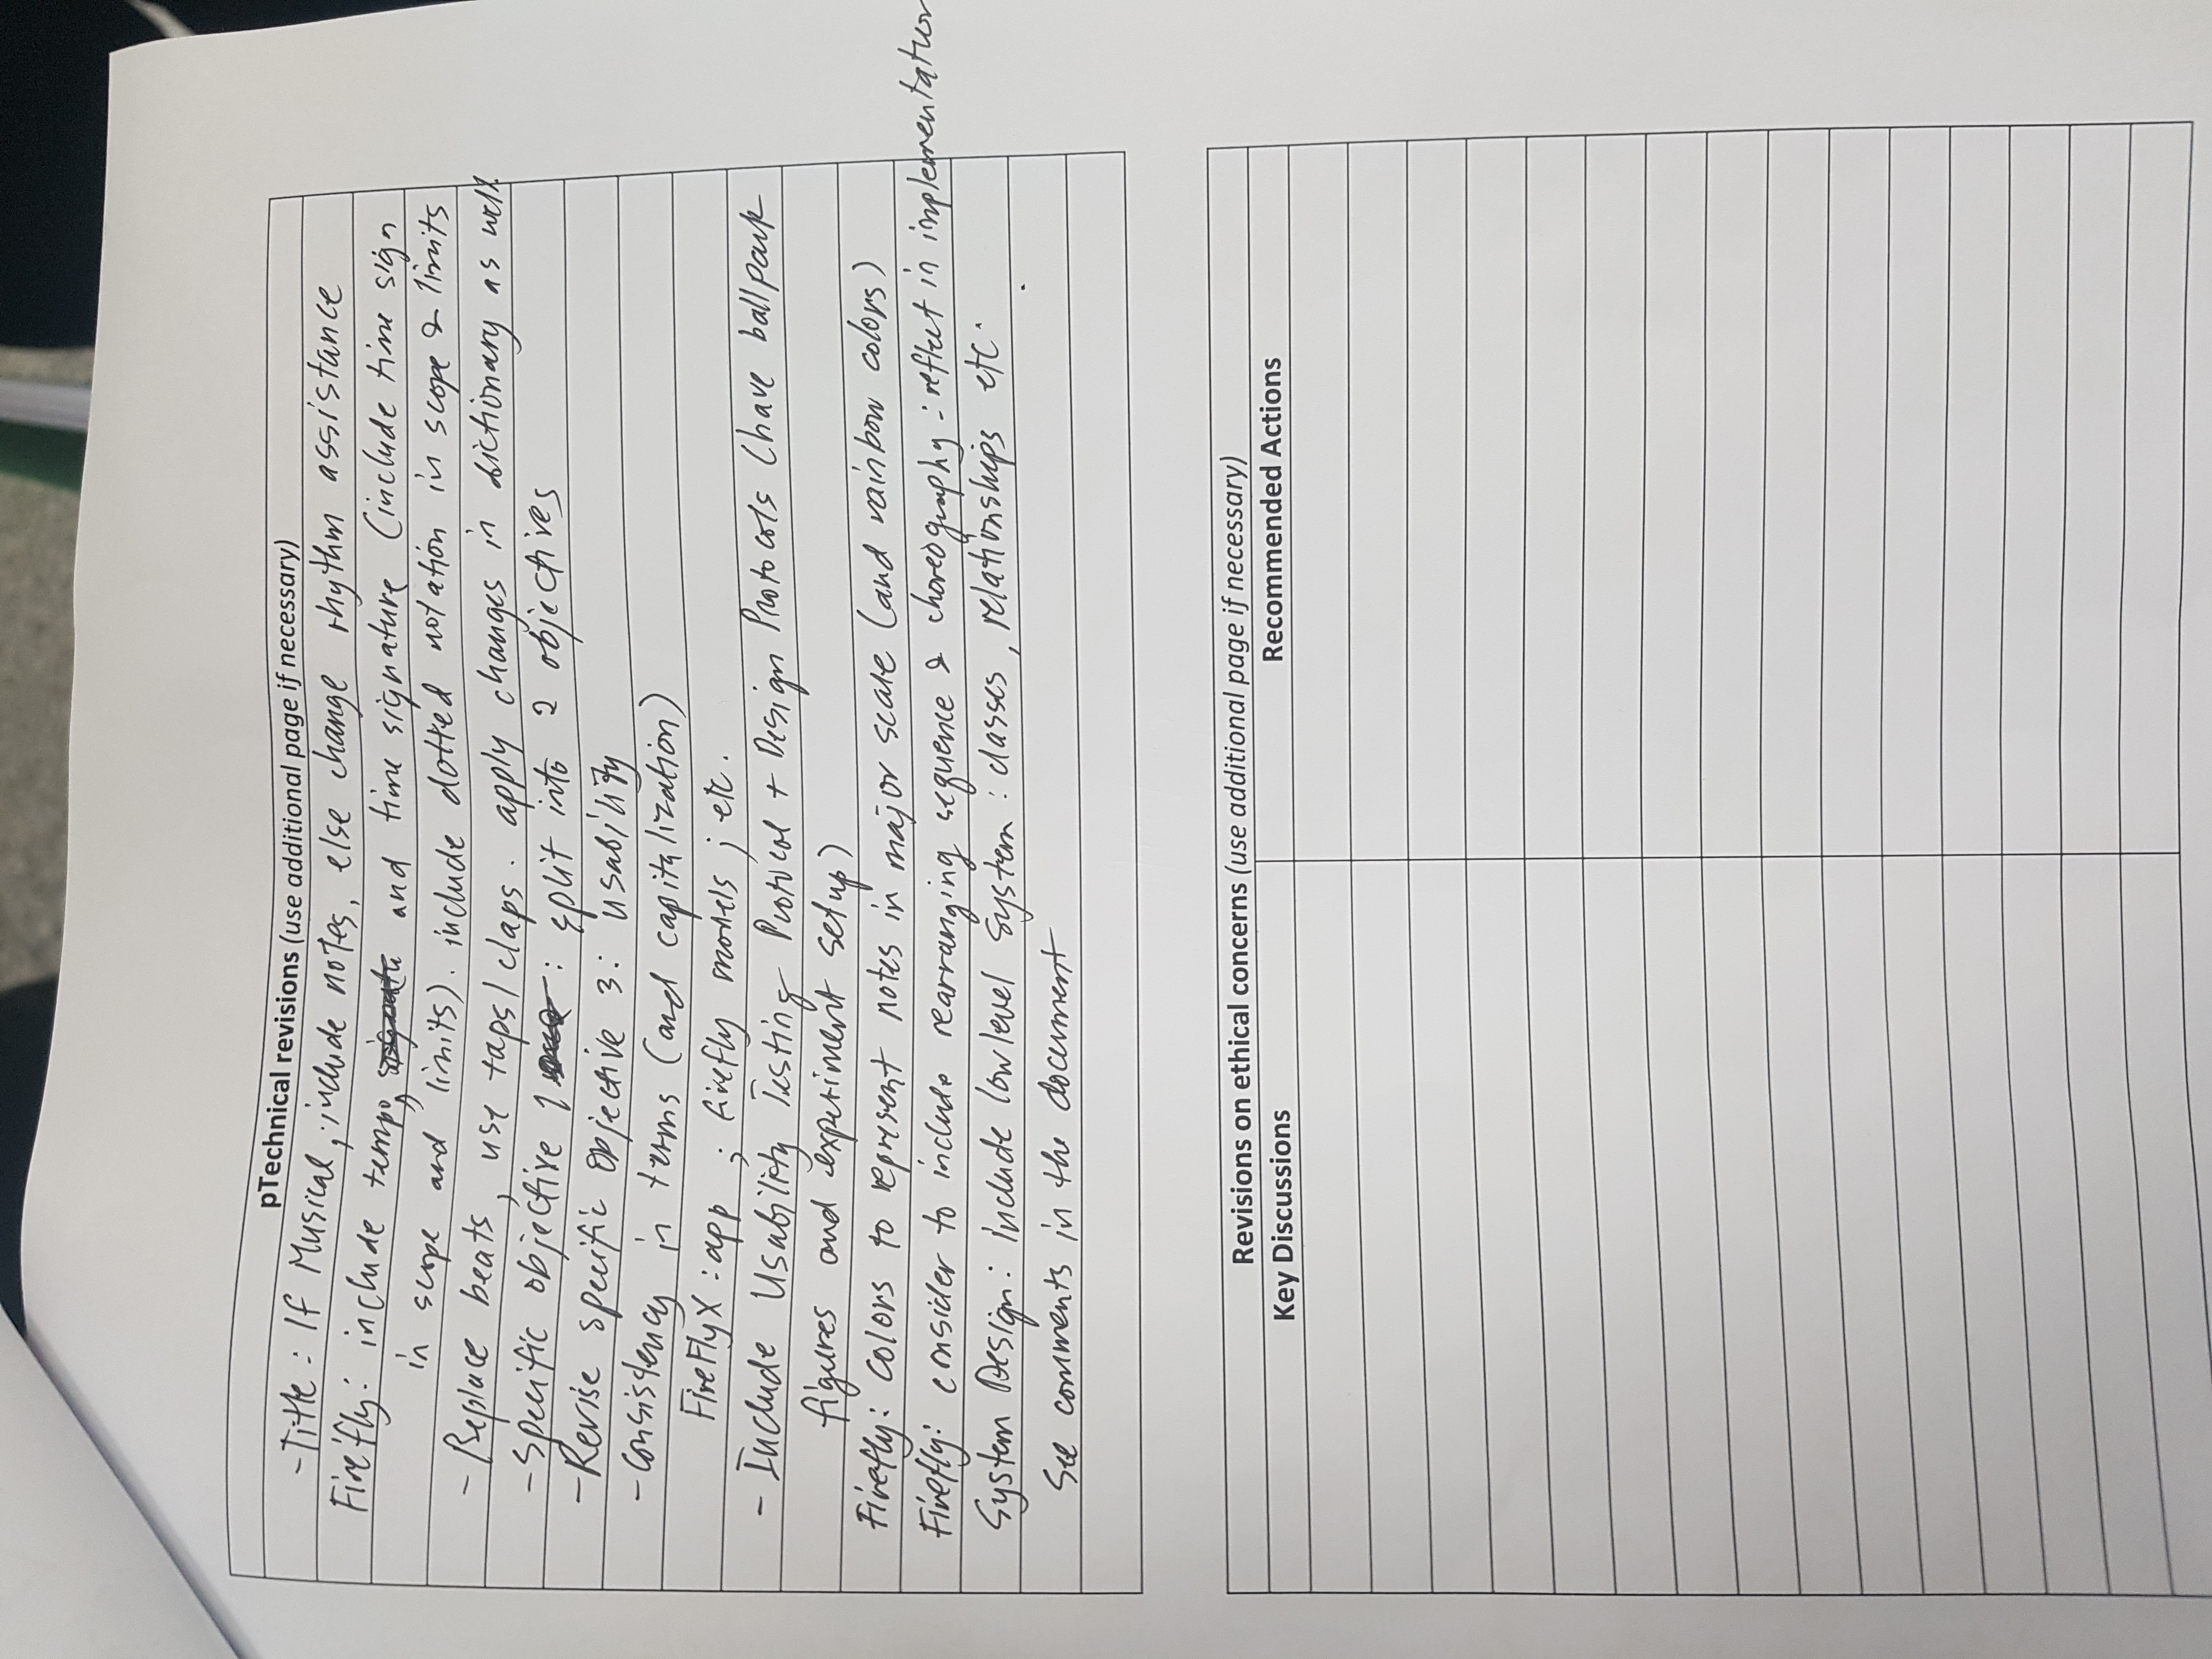 pTechnical revisions (use additional page if necessary)
- Title : If Musical, include notes, else change rhythm assistance
Firefly: include tempo, and time signature (include time sign
in scope and limits). include dotted notation in scope & limits
- Replace beats, use taps/claps. apply changes in dictionary as well.
- Specific objective 1 : split into 2 objectives
- Revise specific objective 3: usability
- Consistency in terms (and capitalization)
FireFlyX : app ; firefly models ; etc.
- Include Usability Testing Protocol + Design Protocols (have ballpark
figures and experiment setup)
Firefly: colors to represent notes in major scale (and rainbow colors)
Firefly: consider to include rearranging sequence & choreography : reflect in implementation
System Design: include low level system : classes, relationships etc.
See comments in the document
Revisions on ethical concerns (use additional page if necessary)
Key Discussions Recommended Actions